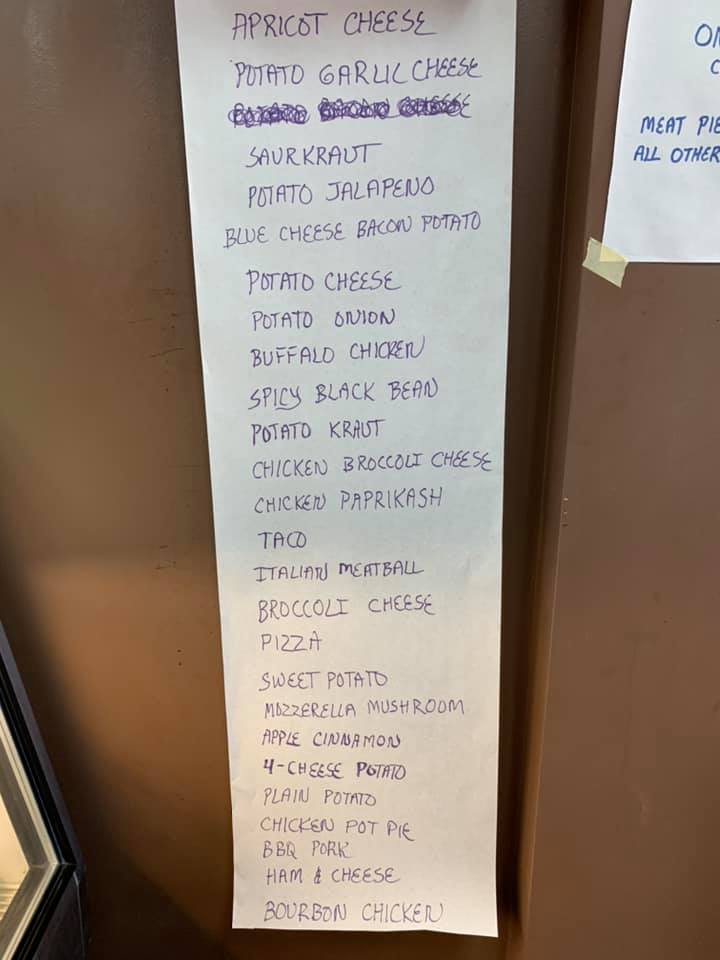 APRICOT CHEESE
POTATO GARLIC CHEESE
SAURKRAUT
POTATO JALAPENO
BLUE CHEESE BACON POTATO
POTATO CHEESE
POTATO ONION
BUFFALO CHICKEN
SPICY BLACK BEAN
POTATO KRAUT
CHICKEN BROCCOLI CHEESE
CHICKEN PAPRIKASH
TACO
ITALIAN MEATBALL
BROCCOLI CHEESE
PIZZA
SWEET POTATO
MOZZERELLA MUSHROOM
APPLE CINNAMON
4-CHEESE POTATO
PLAIN POTATO
CHICKEN POT PIE
BBQ PORK
HAM & CHEESE
BOURBON CHICKEN
MEAT PIE
ALL OTHER